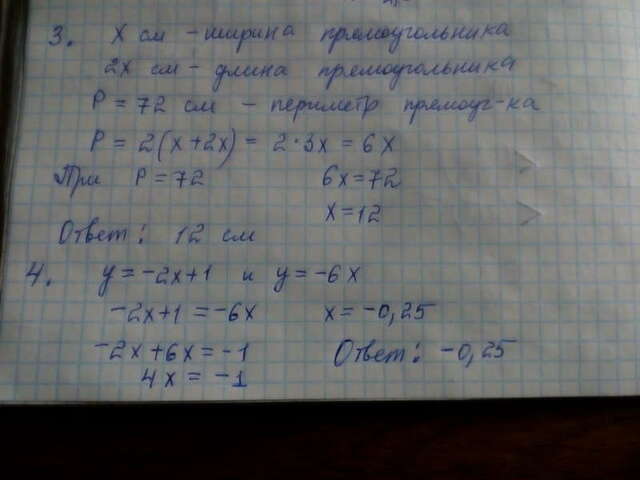 3. X см - ширина прямоугольника
2X см - длина прямоугольника
P = 72 см - периметр прямоуг-ка
P = 2(x+2x) = 2·3x = 6x
При P = 72 6x=72
x=12
Ответ: 12 см
4. y=-2x+1 и y=-6x
-2x+1=-6x x=-0,25
-2x+6x=-1 Ответ: -0,25
4x=-1